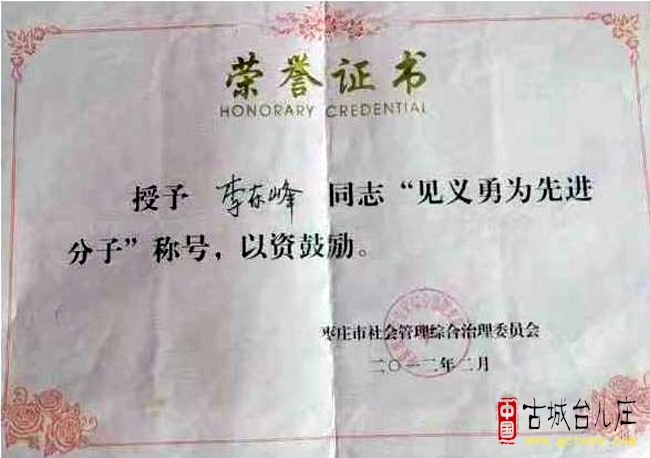 荣誉证书
HONORARY CREDENTIAL
授予 李东峰 同志“见义勇为先进
分子”称号，以资鼓励。
枣庄市社会管理综合治理委员会
二〇一二年二月
中国 古城台儿庄